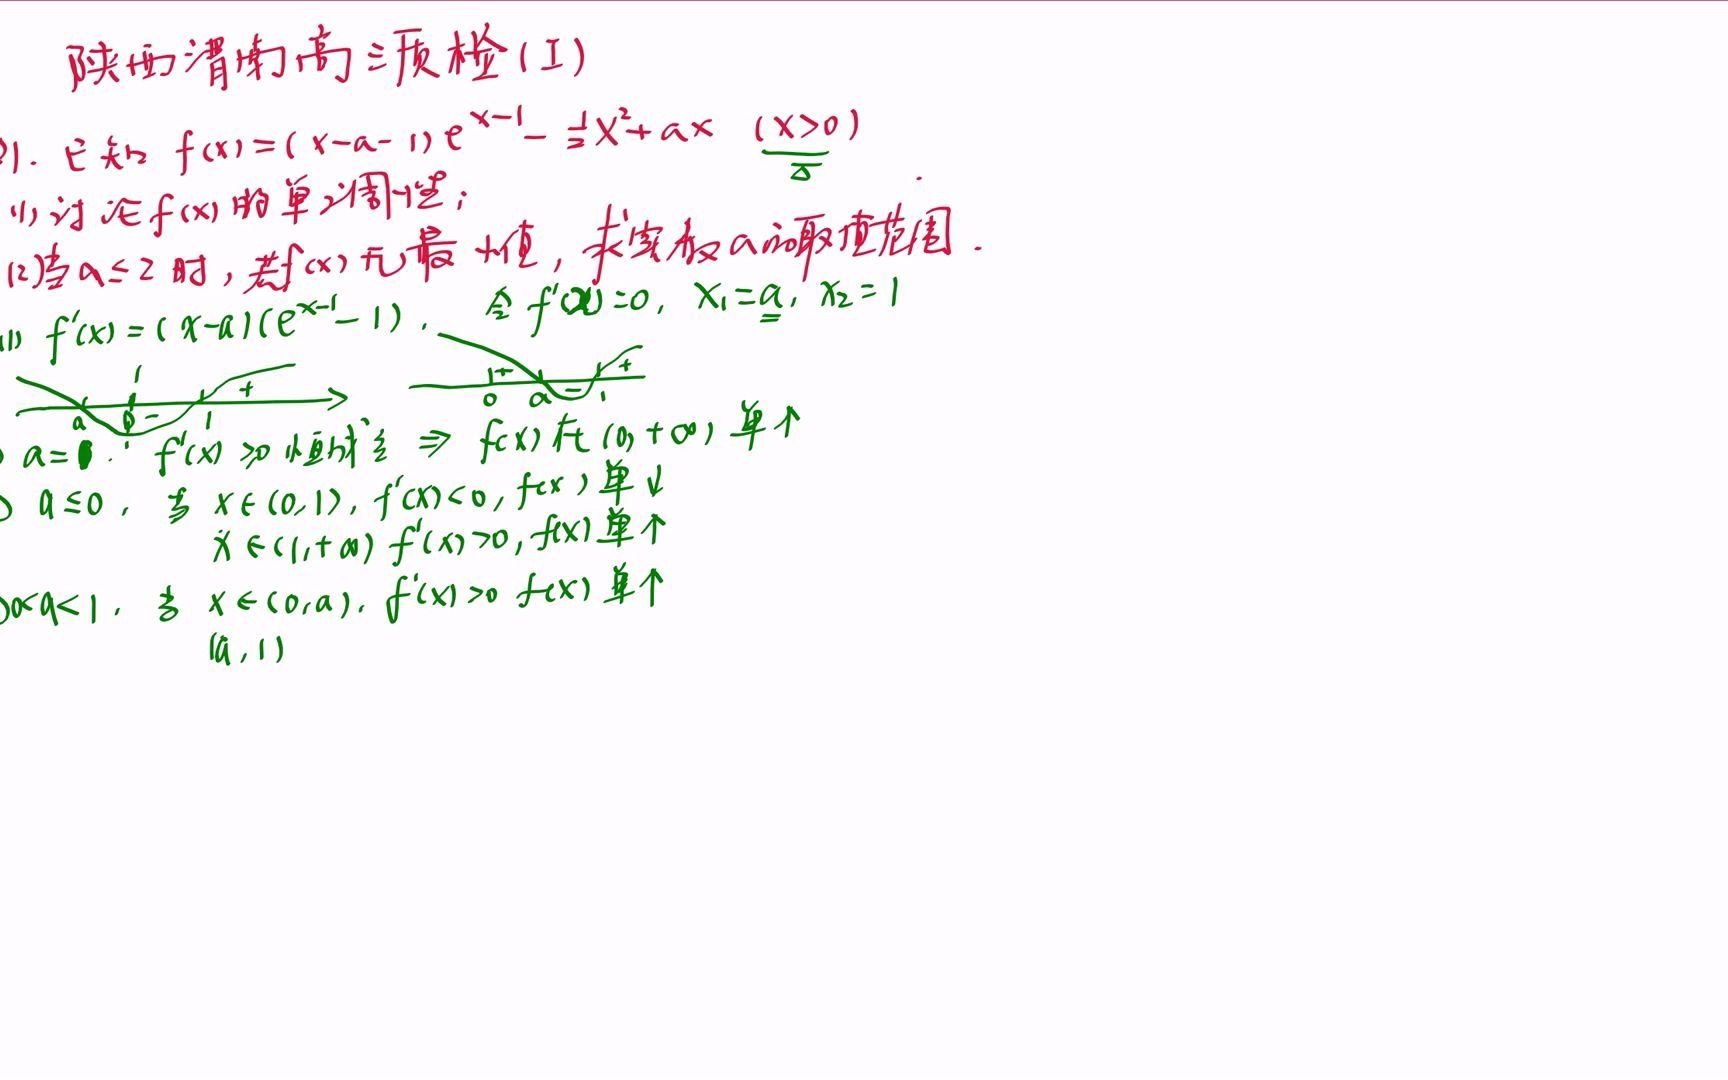 陕西渭南高三质检(I)
例1. 已知 f(x)=(x-a-1)e^{x-1}-½x²+ax (x>0)
(1)讨论f(x)的单调性;
(2)当a≤2时,若f(x)无最小值,求实数a的取值范围.
(1) f'(x)=(x-a)(e^{x-1}-1). 令f'(x)=0, x₁=a, x₂=1
a 0 - 1 + 0 + a - 1 +
a=1. f'(x)≥0恒成立 ⇒ f(x)在(0,+∞)单↑
a≤0, 当 x∈(0,1), f'(x)<0, f(x)单↓
x∈(1,+∞) f'(x)>0, f(x)单↑
0<a<1, 当 x∈(0,a), f'(x)>0 f(x)单↑
(a,1)